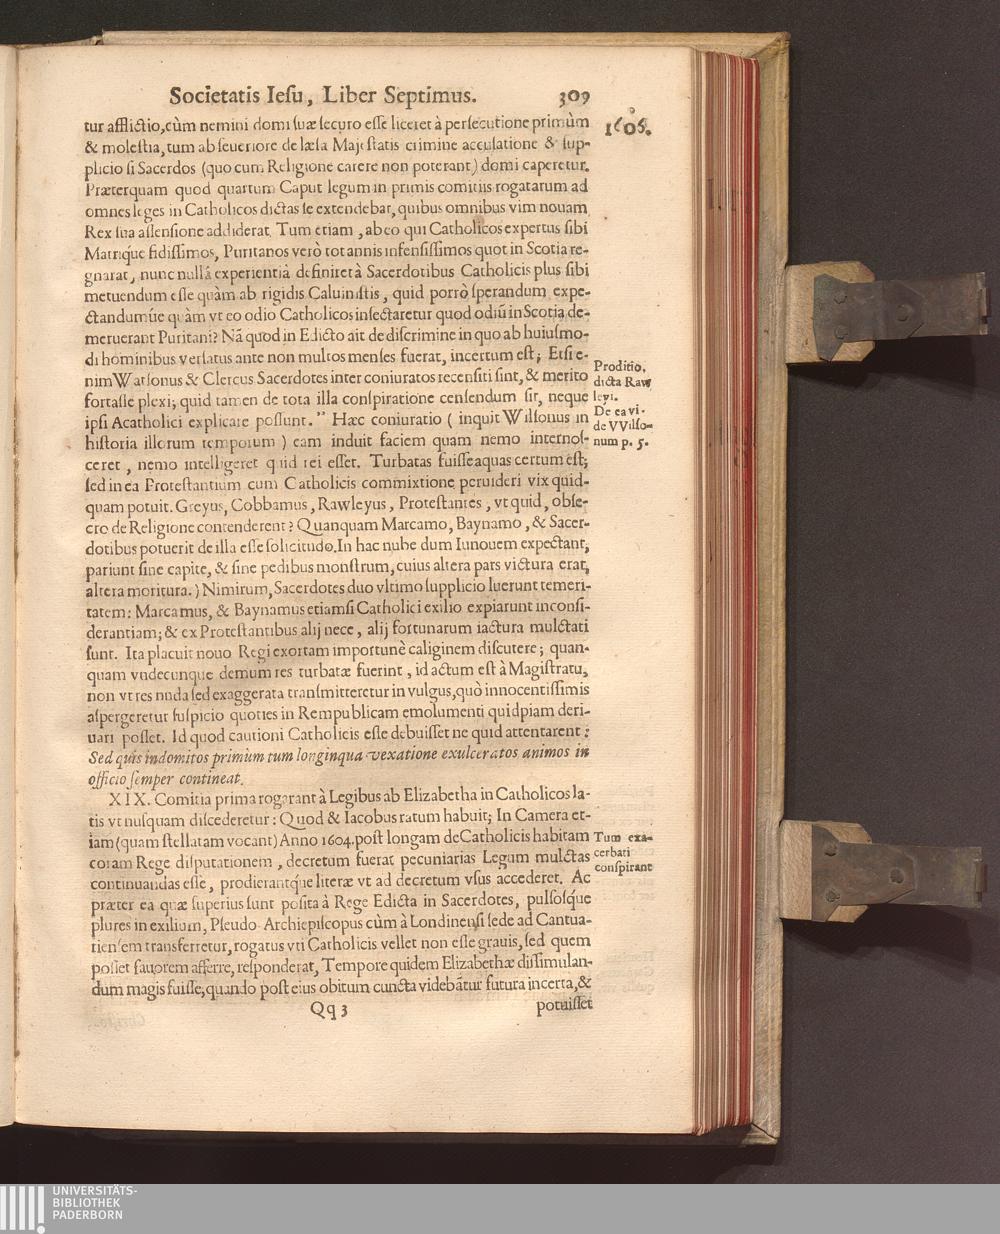 Societatis Iesu, Liber Septimus. 309
1605.
tur afflictio, cùm nemini domi suæ securo esse liceret à persecutione primùm
& molestia, tum ab seueriore de læsa Majestatis crimine accusatione & sup-
plicio si Sacerdos (quo cum Religione carere non poterant) domi caperetur.
Præterquam quod quartum Caput legum in primis comitiis rogatarum ad
omnes leges in Catholicos dictas se extendebat, quibus omnibus vim nouam
Rex sua assensione addiderat. Tum etiam, ab eo qui Catholicos expertus sibi
Matriq́ue fidissimos, Puritanos verò tot annis infensissimos quot in Scotia re-
gnarat, nunc nullâ experientiâ definiret à Sacerdotibus Catholicis plus sibi
metuendum esse quàm ab rigidis Caluinistis, quid porrò sperandum expe-
ctandumũe quàm vt eo odio Catholicos insectaretur quod odiũ in Scotia de-
meruerant Puritani? Nã quod in Edicto ait de discrimine in quo ab huiusmo-
di hominibus versatus ante non multos menses fuerat, incertum est; Etsi e-
nim Watsonus & Clercus Sacerdotes inter coniuratos recensiti sint, & merito
fortasse plexi; quid tamen de tota illa conspiratione censendum sit, neque
ipsi Acatholici explicare possunt.” Hæc coniuratio ( inquit Wilsonus in
historia illorum temporum ) eam induit faciem quam nemo internos-
ceret, nemo intelligeret quid rei esset. Turbatas fuisse aquas certum est;
sed in ea Protestantium cum Catholicis commixtione peruideri vix quid-
quam potuit. Greyus, Cobbamus, Rawleyus, Protestantes, vt quid, obse-
cro de Religione contenderent? Quanquam Marcamo, Baynamo, & Sacer-
dotibus potuerit de illa esse solicitudo. In hac nube dum Iunonem expectant,
pariunt sine capite, & sine pedibus monstrum, cuius altera pars victura erat,
altera moritura.) Nimirum, Sacerdotes duo vltimo supplicio luerunt temeri-
tatem: Marcamus, & Baynamus etiamsi Catholici exilio expiarunt inconsi-
derantiam; & ex Protestantibus alij nece, alij fortunarum iactura mulctati
sunt. Ita placuit nouo Regi exortam importunè caliginem discutere; quan-
quam vndecunque demum res turbatæ fuerint, id actum est à Magistratu,
non vt res nuda sed exaggerata transmitteretur in vulgus, quò innocentissimis
aspergeretur suspicio quoties in Rempublicam emolumenti quidpiam deri-
uari posset. Id quod cautioni Catholicis esse debuisset ne quid attentarent:
Sed quis indomitos primùm tum longinqua vexatione exulceratos animos in
officio semper contineat.
Proditio,
dicta Raw
leyi.
De ea vi-
de VVilso-
num p. 5.
XIX. Comitia prima rogarant à Legibus ab Elizabetha in Catholicos la-
tis vt nusquam discederetur: Quod & Iacobus ratum habuit; In Camera et-
iam (quam stellatam vocant) Anno 1604. post longam de Catholicis habitam
coram Rege disputationem, decretum fuerat pecuniarias Legum mulctas
continuandas esse, prodierantq́ue literæ vt ad decretum vsus accederet. Ac
præter ea quæ superius sunt posita à Rege Edicta in Sacerdotes, pulsosq́ue
plures in exilium, Pseudo-Archiepiscopus cùm à Londinensi sede ad Cantua-
riensem transferretur, rogatus vti Catholicis vellet non esse grauis, sed quem
posset fauorem afferre, responderat, Tempore quidem Elizabethæ dissimulan-
dum magis fuisse, quando post eius obitum cuncta videbãtur futura incerta, &
Tum exa-
cerbati
conspirant
Qq 3 potuisset
UNIVERSITÄTS-
BIBLIOTHEK
PADERBORN